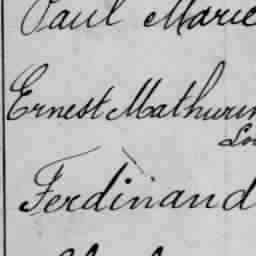 Paul Marie
Ernest Mathurin
Ferdinand